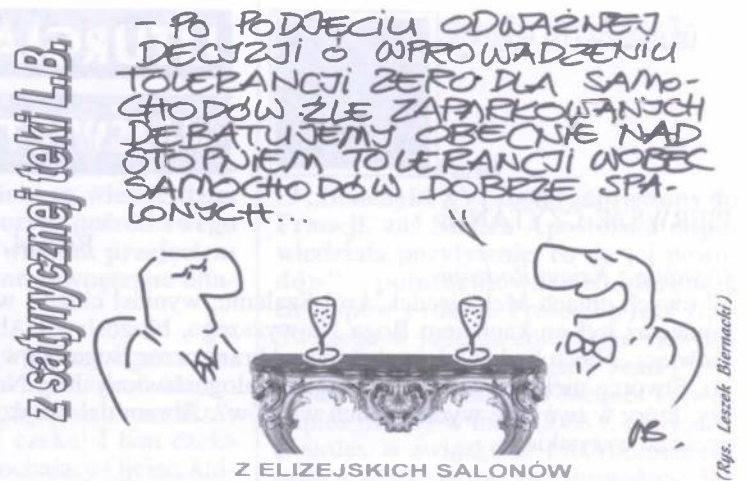 z satyrycznej teki L.B.
– PO PODJĘCIU ODWAŻNEJ
DECYZJI O WPROWADZENIU
TOLERANCJI ZERO DLA SAMO-
CHODÓW ŹLE ZAPARKOWANYCH
DEBATUJEMY OBECNIE NAD
STOPNIEM TOLERANCJI WOBEC
SAMOCHODÓW DOBRZE SPA-
LONYCH...
Z ELIZEJSKICH SALONÓW
(Rys. Leszek Biernacki)